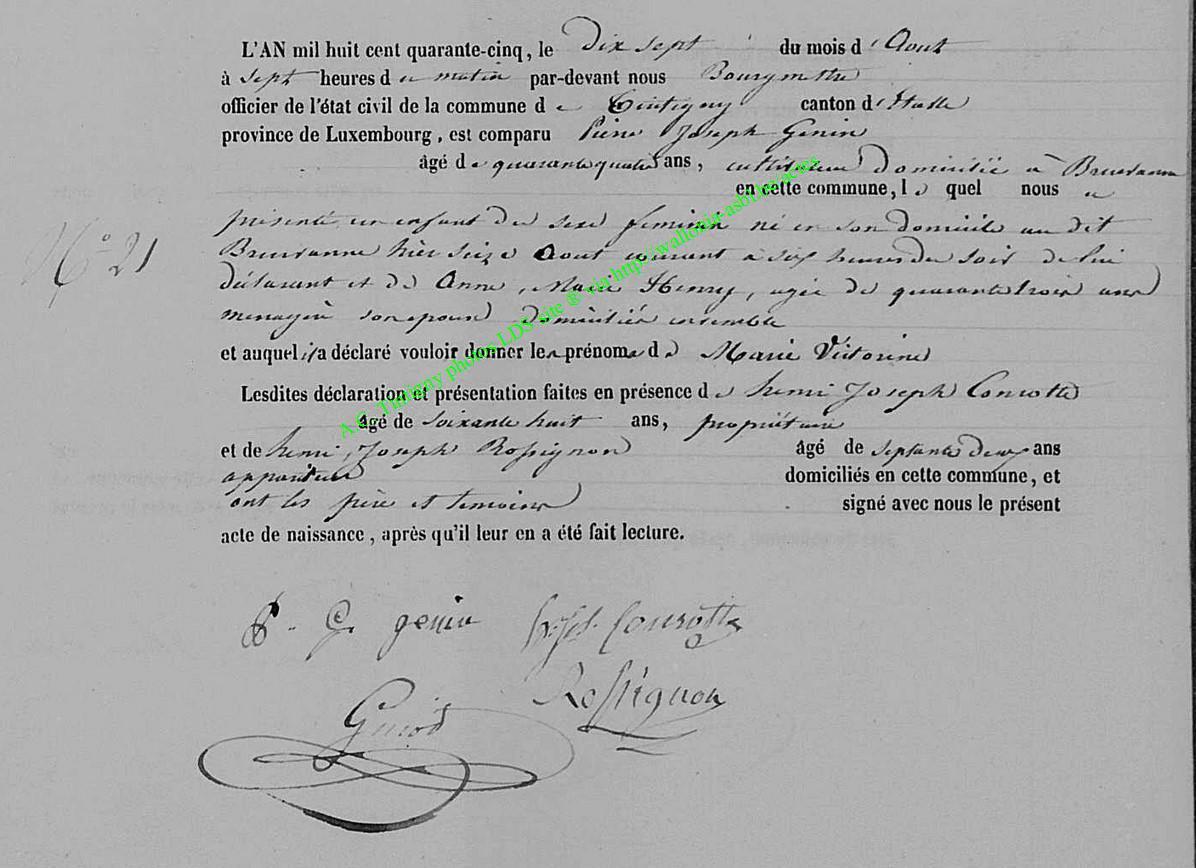 L'AN mil huit cent quarante-cinq, le dix sept du mois d'Aout
à sept heures de matin par-devant nous Bourgmestre
officier de l'état civil de la commune de Tintigny canton d'Etalle
province de Luxembourg, est comparu Pierre Joseph Genin
âgé de quarante quatre ans, cultivateur domicilié à Breuvanne
en cette commune, le quel nous a
N° 21
présenté un enfant du sexe feminin né en son domicile au dit
Breuvanne hier seize Aout courant à six heures du soir de lui
déclarant et de Anne, Marie Henry, agée de quarante trois ans
menagère son epouse domiciliés ensemble
et auquel il a déclaré vouloir donner les prénoms de Marie Victorine
Lesdites déclaration et présentation faites en présence de henri Joseph Conrotte
âgé de soixante huit ans, propriétaire
et de henri, Joseph Rossignon âgé de septante deux ans
appariteur domiciliés en cette commune, et
ont les père et temoins signé avec nous le présent
acte de naissance, après qu'il leur en a été fait lecture.
genin Conrotte
Rossignon
A.C. Tintigny photos LDS-site ® via http://wallonia-asbl.be/actes